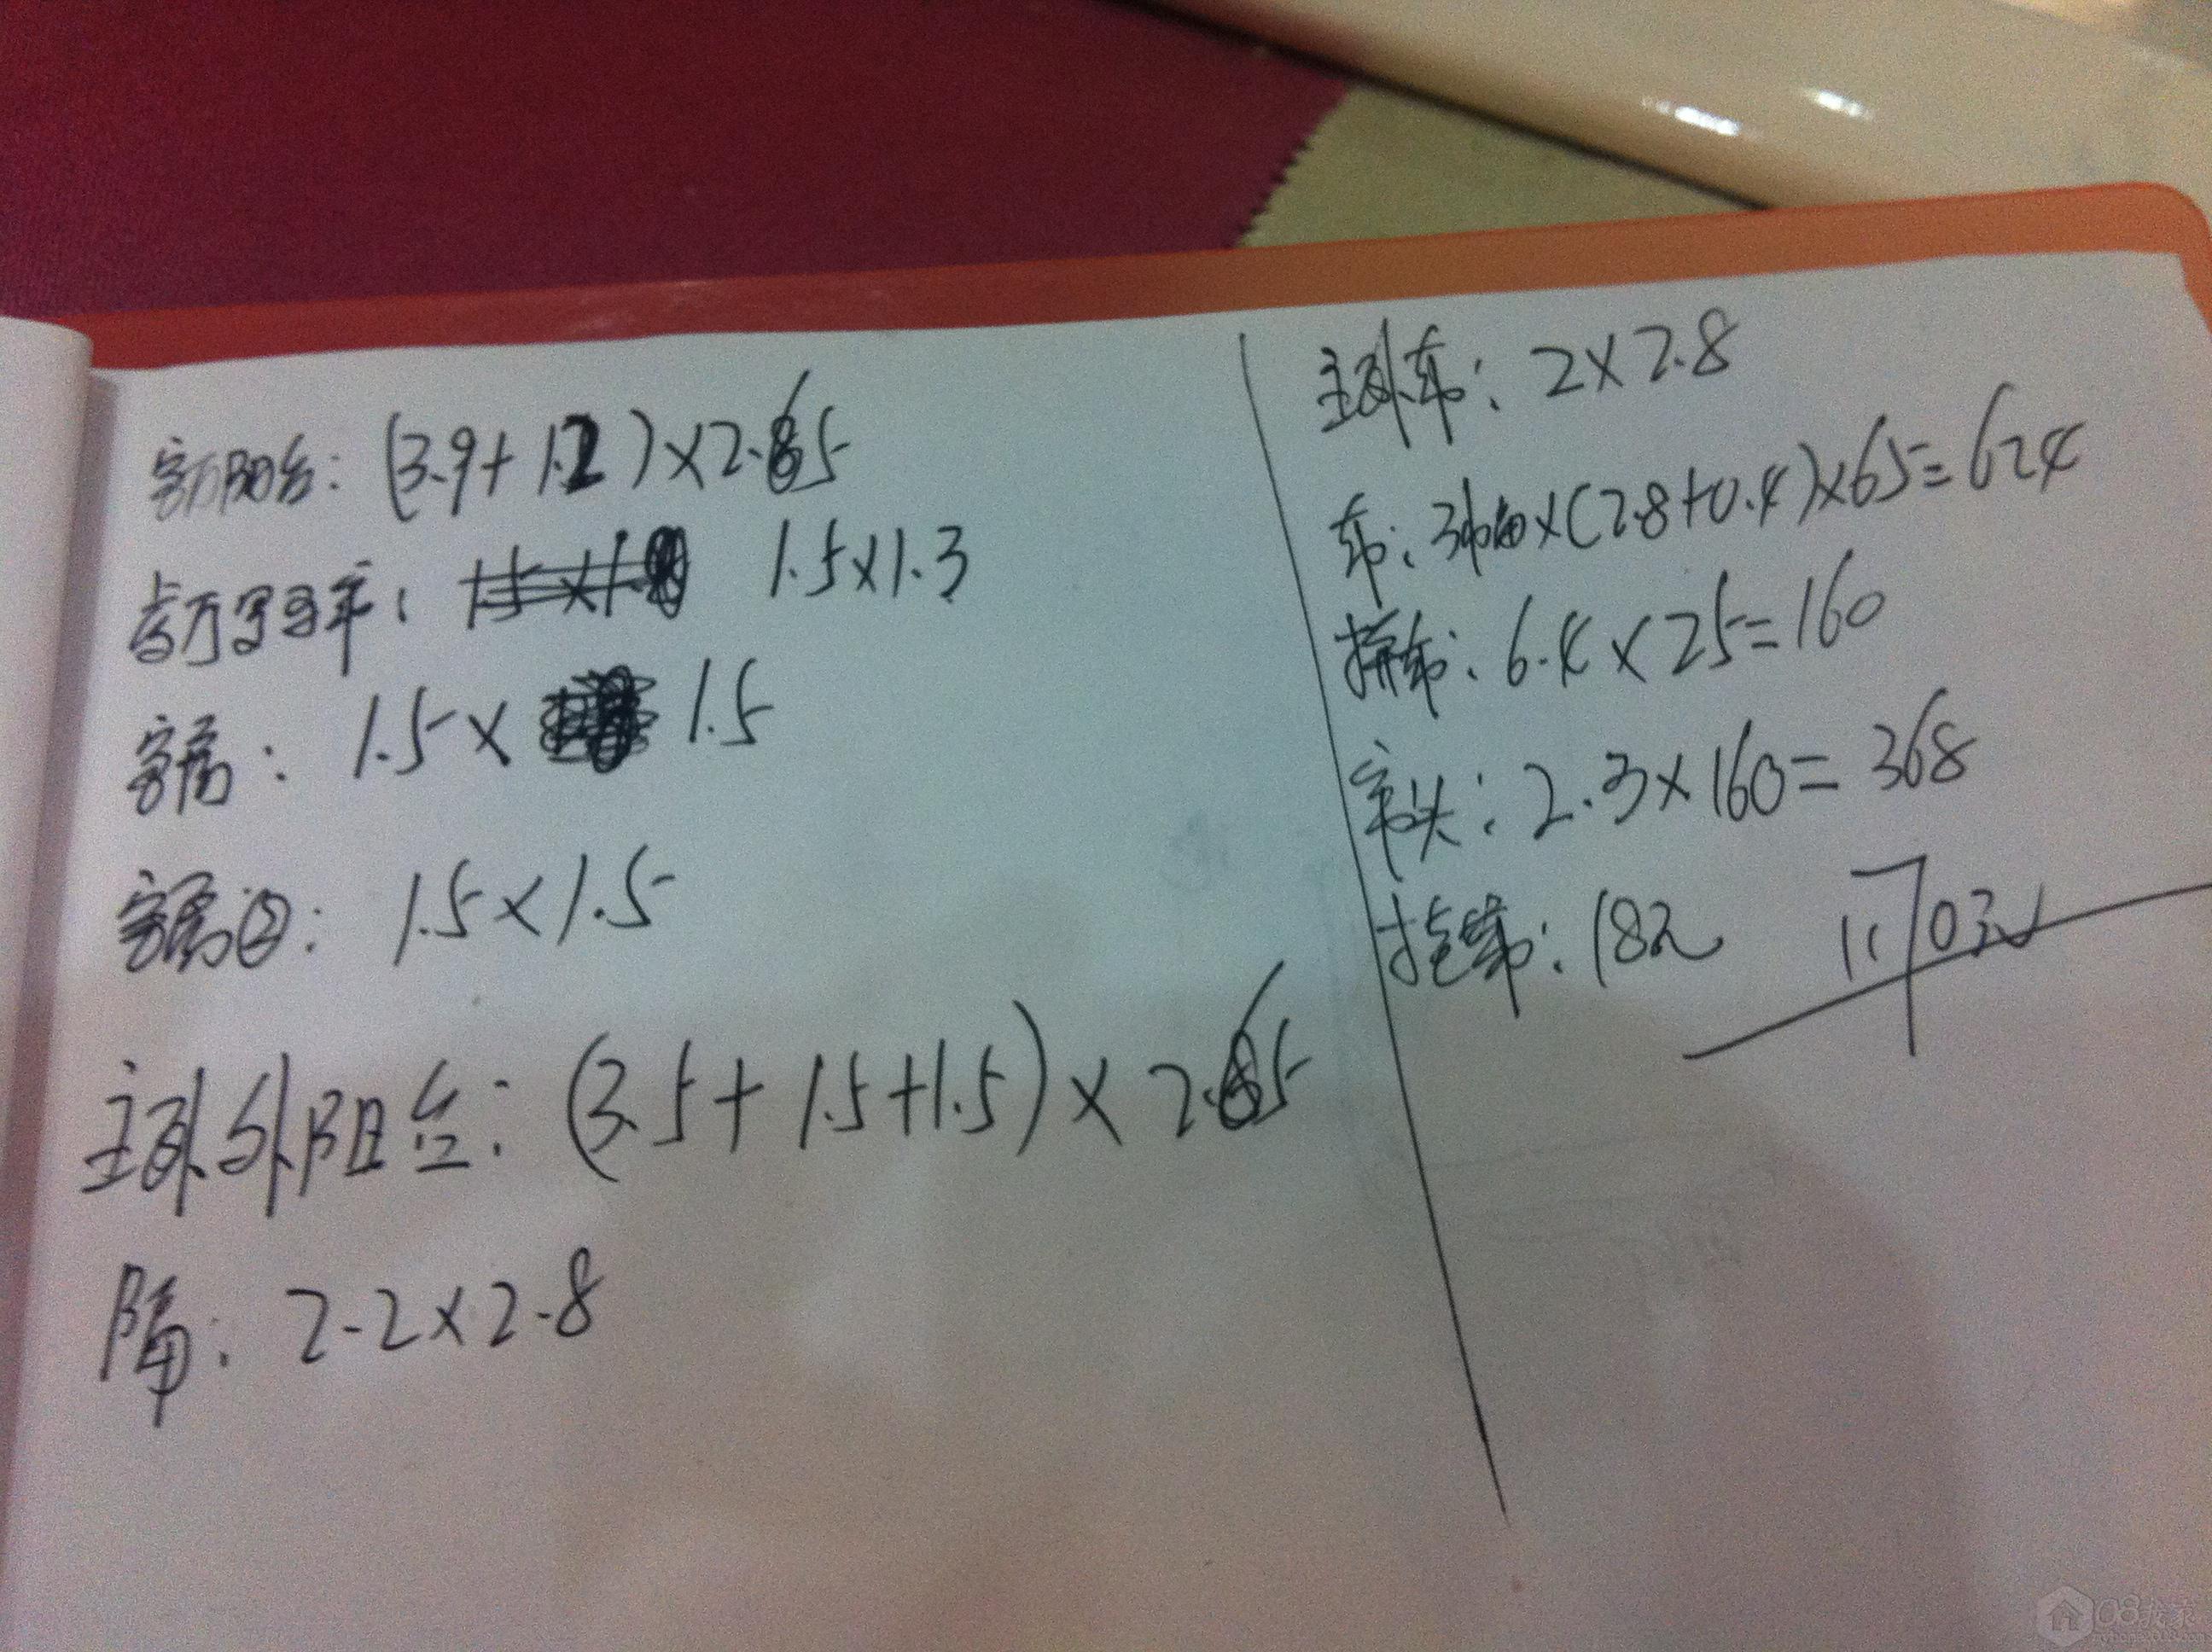 客厅阳台: (3.9+1.2)×2.65
1.5×1.3
客房: 1.5× 1.5
客房②: 1.5×1.5
主卧外阳台: (3.5+1.5+1.5)×2.65
隔: 2.2×2.8
主卧布: 2×2.8
布: 3幅×(2.8+0.4)×65=624
拼布: 6.4×25=160
帘头: 2.3×160=368
挂带: 18元
1170元
08找家